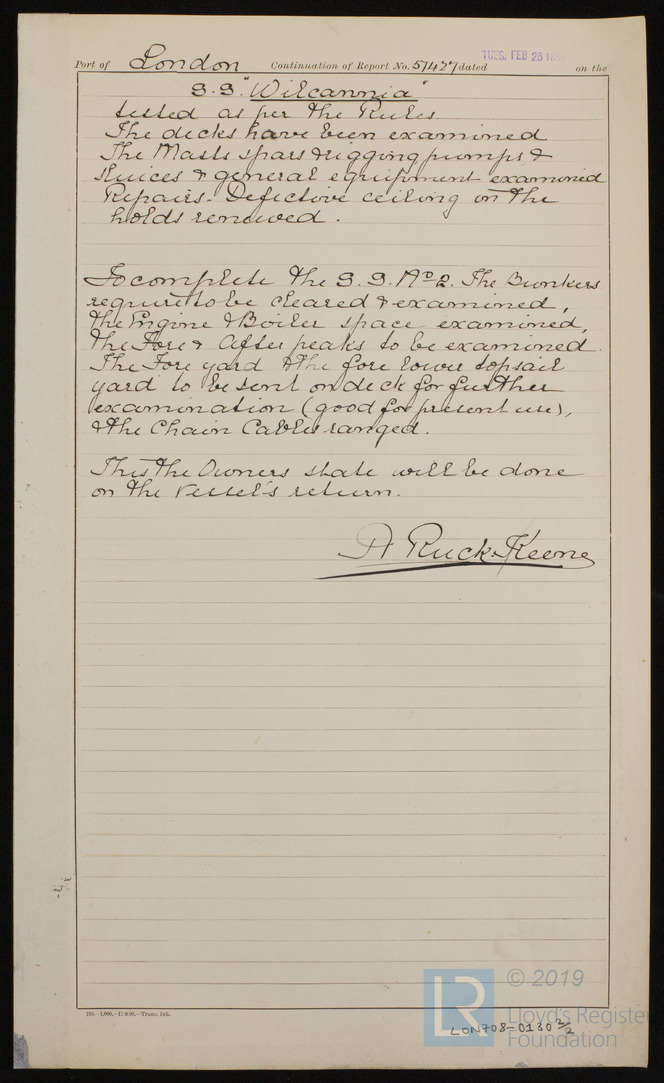 Port of London Continuation of Report No. 51427 dated TUES. FEB 25 on the
S.S. "Wilcannia"
tested as per the Rules
The decks have been examined
The Masts spars & rigging pumps &
sluices & general equipment examined
Repairs - Defective ceiling in the
holds renewed.
To complete the S.S. No 2. The Bunkers
require to be cleared & examined,
the Engine & Boiler space examined,
the Fore & After peaks to be examined
The Fore yard & the fore lower topsail
yard to be sent on deck for further
examination (good for present use),
& the Chain Cables ranged.
This the Owners state will be done
on the Vessel's return.
A Ruck-Keene
210.-1,000.-17.9.95.-Trans. Ink.
LR © 2019
Lloyd's Register
Foundation
LON708-0130 2/2